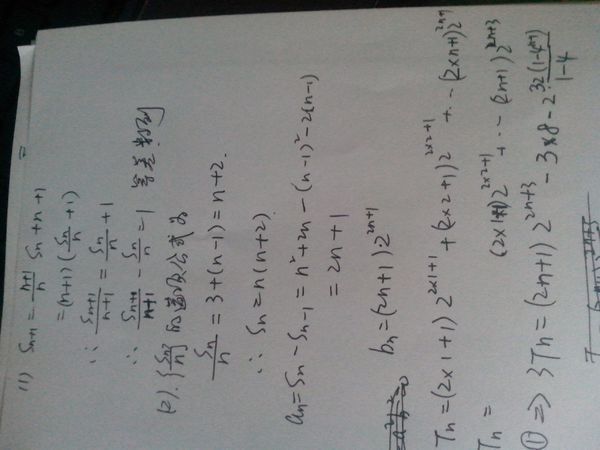 (1) Sn+1 = n+1/n Sn + n + 1
= (n+1)(Sn/n + 1)
∴ Sn+1/n+1 = Sn/n + 1
∴ Sn+1/n+1 - Sn/n = 1 等差数列
(2). {Sn/n} 的通项公式为
Sn/n = 3 + (n-1) = n+2.
∴ Sn = n(n+2).
an = Sn - Sn-1 = n² + 2n - (n-1)² - 2(n-1)
= 2n+1
bn = (2n+1) 2^2n+1
Tn = (2×1+1) 2^2×1+1 + (2×2+1) 2^2×2+1 + ·· - (2×n+1) 2^2n+1
Tn = (2×1+1) 2^2×2+1 + ·· - (2n+1) 2^2n+3
① => 3Tn = (2n+1) 2^2n+3 - 3×8 - 2·